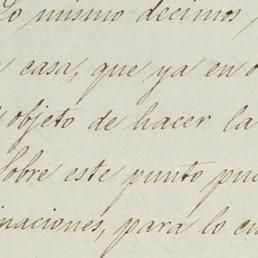 Lo mismo decimos
casa, que ya en
objeto de hacer la
Sobre este punto
naciones, para lo